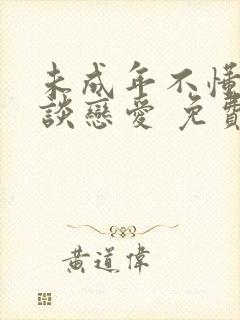 未成年不懂
談戀愛 免費
黃道偉